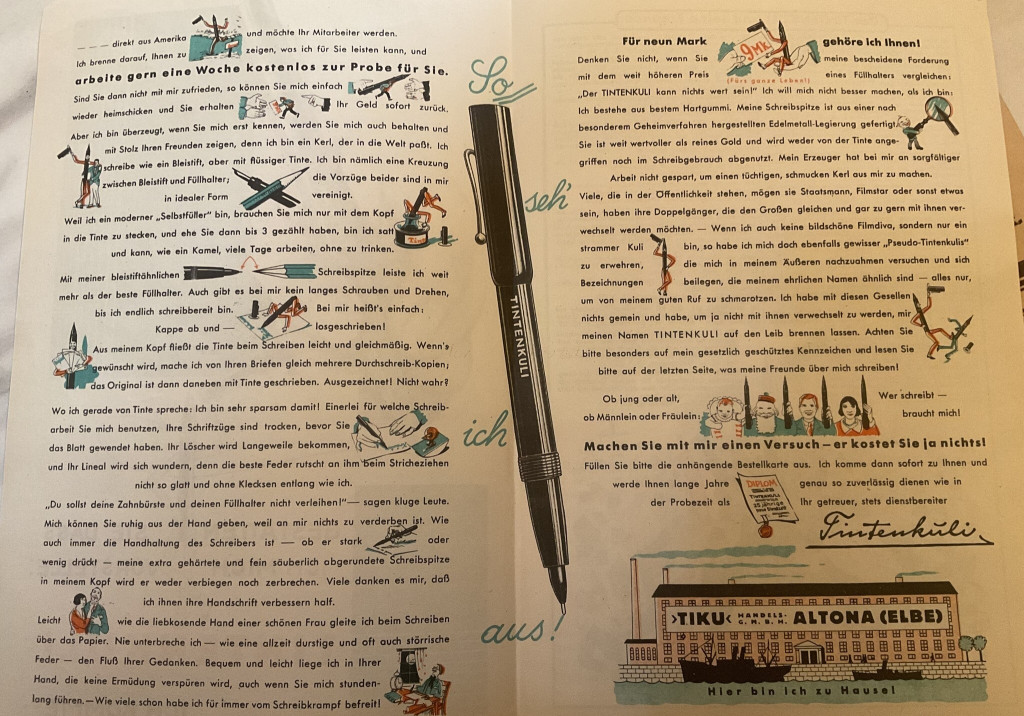 — — — — direkt aus Amerika und möchte Ihr Mitarbeiter werden.
Ich brenne darauf, Ihnen zu zeigen, was ich für Sie leisten kann, und
arbeite gern eine Woche kostenlos zur Probe für Sie.
Sind Sie dann nicht mit mir zufrieden, so können Sie mich einfach
wieder heimschicken und Sie erhalten Ihr Geld sofort zurück.
Aber ich bin überzeugt, wenn Sie mich erst kennen, werden Sie mich auch behalten und
mit Stolz Ihren Freunden zeigen, denn ich bin ein Kerl, der in die Welt paßt. Ich
schreibe wie ein Bleistift, aber mit flüssiger Tinte. Ich bin nämlich eine Kreuzung
zwischen Bleistift und Füllhalter; die Vorzüge beider sind in mir
in idealer Form vereinigt.
Weil ich ein moderner „Selbstfüller" bin, brauchen Sie mich nur mit dem Kopf
in die Tinte zu stecken, und ehe Sie dann bis 3 gezählt haben, bin ich satt
und kann, wie ein Kamel, viele Tage arbeiten, ohne zu trinken.
Tinte
Mit meiner bleistiftähnlichen Schreibspitze leiste ich weit
mehr als der beste Füllhalter. Auch gibt es bei mir kein langes Schrauben und Drehen,
bis ich endlich schreibbereit bin. Bei mir heißt's einfach:
Kappe ab und — losgeschrieben!
Aus meinem Kopf fließt die Tinte beim Schreiben leicht und gleichmäßig. Wenn's
gewünscht wird, mache ich von Ihren Briefen gleich mehrere Durchschreib-Kopien;
das Original ist dann daneben mit Tinte geschrieben. Ausgezeichnet! Nicht wahr?
Wo ich gerade von Tinte spreche: Ich bin sehr sparsam damit! Einerlei für welche Schreib-
arbeit Sie mich benutzen, Ihre Schriftzüge sind trocken, bevor Sie
das Blatt gewendet haben. Ihr Löscher wird Langeweile bekommen,
und Ihr Lineal wird sich wundern, denn die beste Feder rutscht an ihm beim Stricheziehen
nicht so glatt und ohne Klecksen entlang wie ich.
„Du sollst deine Zahnbürste und deinen Füllhalter nicht verleihen!"— sagen kluge Leute.
Mich können Sie ruhig aus der Hand geben, weil an mir nichts zu verderben ist. Wie
auch immer die Handhaltung des Schreibers ist — ob er stark oder
wenig drückt — meine extra gehärtete und fein säuberlich abgerundete Schreibspitze
in meinem Kopf wird er weder verbiegen noch zerbrechen. Viele danken es mir, daß
ich ihnen ihre Handschrift verbessern half.
Leicht wie die liebkosende Hand einer schönen Frau gleite ich beim Schreiben
über das Papier. Nie unterbreche ich — wie eine allzeit durstige und oft auch störrische
Feder — den Fluß Ihrer Gedanken. Bequem und leicht liege ich in Ihrer
Hand, die keine Ermüdung verspüren wird, auch wenn Sie mich stunden-
lang führen.—Wie viele schon habe ich für immer vom Schreibkrampf befreit!
So
seh'
ich
aus!
TINTENKULI
Für neun Mark 9 Mk. gehöre ich Ihnen!
(Fürs ganze Leben!)
Denken Sie nicht, wenn Sie meine bescheidene Forderung
mit dem weit höheren Preis eines Füllhalters vergleichen:
„Der TINTENKULI kann nichts wert sein!" Ich will mich nicht besser machen, als ich bin:
Ich bestehe aus bestem Hartgummi. Meine Schreibspitze ist aus einer nach
besonderem Geheimverfahren hergestellten Edelmetall-Legierung gefertigt.
Sie ist weit wertvoller als reines Gold und wird weder von der Tinte ange-
griffen noch im Schreibgebrauch abgenutzt. Mein Erzeuger hat bei mir an sorgfältiger
Arbeit nicht gespart, um einen tüchtigen, schmucken Kerl aus mir zu machen.
Viele, die in der Öffentlichkeit stehen, mögen sie Staatsmann, Filmstar oder sonst etwas
sein, haben ihre Doppelgänger, die den Großen gleichen und gar zu gern mit ihnen ver-
wechselt werden möchten. — Wenn ich auch keine bildschöne Filmdiva, sondern nur ein
strammer Kuli bin, so habe ich mich doch ebenfalls gewisser „Pseudo-Tintenkulis"
zu erwehren, die mich in meinem Äußeren nachzuahmen versuchen und sich
Bezeichnungen beilegen, die meinem ehrlichen Namen ähnlich sind — alles nur,
um von meinem guten Ruf zu schmarotzen. Ich habe mit diesen Gesellen
nichts gemein und habe, um ja nicht mit ihnen verwechselt zu werden, mir
meinen Namen TINTENKULI auf den Leib brennen lassen. Achten Sie
bitte besonders auf mein gesetzlich geschütztes Kennzeichen und lesen Sie
bitte auf der letzten Seite, was meine Freunde über mich schreiben!
Ob jung oder alt, Wer schreibt —
ob Männlein oder Fräulein: braucht mich!
Machen Sie mit mir einen Versuch — er kostet Sie ja nichts!
Füllen Sie bitte die anhängende Bestellkarte aus. Ich komme dann sofort zu Ihnen und
werde Ihnen lange Jahre genau so zuverlässig dienen wie in
der Probezeit als Ihr getreuer, stets dienstbereiter
DIPLOM
TINTENKULI
Tintenkuli
›TIKU‹ HANDELS- G.M.B.H. ALTONA (ELBE)
Hier bin ich zu Hause!